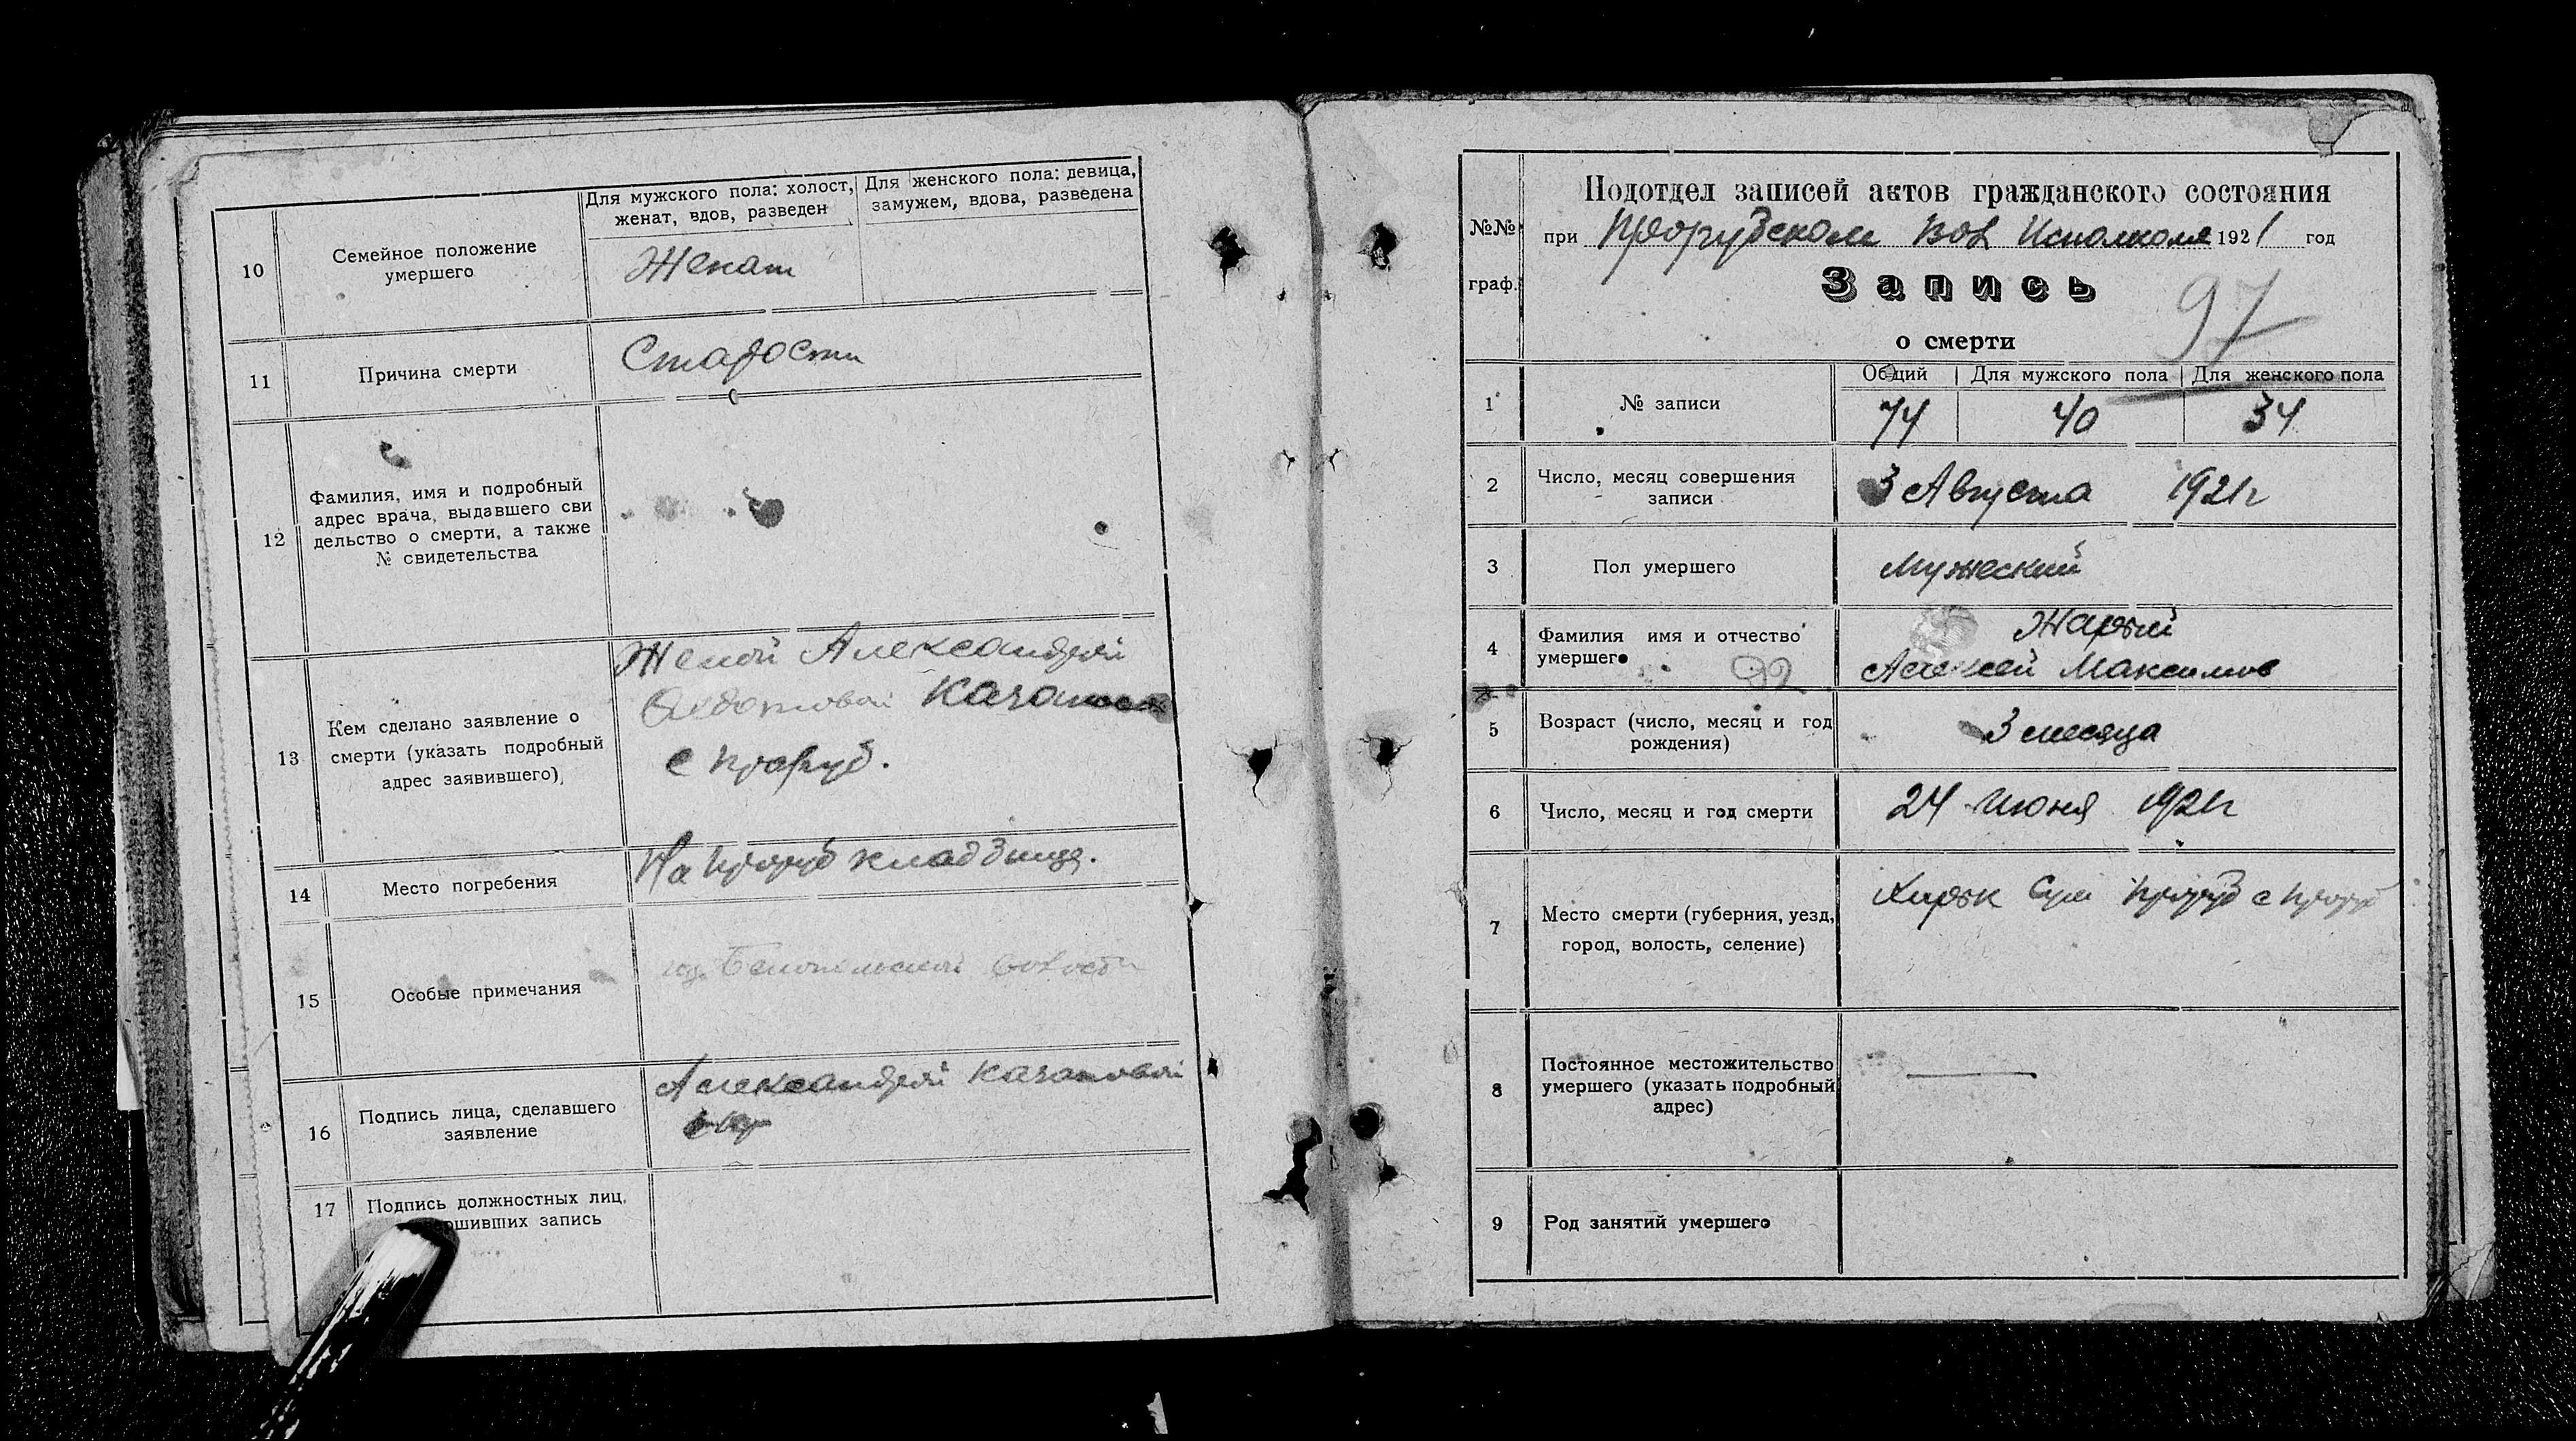 10
Семейное положение
умершего
Для мужского пола: холост,
женат, вдов, разведен
Для женского пола: девица,
замужем, вдова, разведена
Женат
11
Причина смерти
Старости
12
Фамилия, имя и подробный
адрес врача, выдавшего сви
дельство о смерти, а также
№ свидетельства
13
Кем сделано заявление о
смерти (указать подробный
адрес заявившего)
Женой Александрой
с Проруб.
14
Место погребения
На Проруб кладбище.
15
Особые примечания
волости
16
Подпись лица, сделавшего
заявление
Александрой Казаковой
17
Подпись должностных лиц,
ошивших запись
№№
граф.
Подотдел записей актов гражданского состояния
при Прорубском Вол Исполкоме 1921 год
Запись
о смерти
97
1
№ записи
Общий
Для мужского пола
Для женского пола
74
40
34
2
Число, месяц совершения
записи
3 Августа 1921г
3
Пол умершего
Мужеский
4
Фамилия имя и отчество
умершего
92
Жарый
Алексей Максимов
5
Возраст (число, месяц и год
рождения)
3 месяца
6
Число, месяц и год смерти
24 Июня 1921г
7
Место смерти (губерния, уезд,
город, волость, селение)
Харьк Сум Проруб с Проруб
8
Постоянное местожительство
умершего (указать подробный
адрес)
9
Род занятий умершего